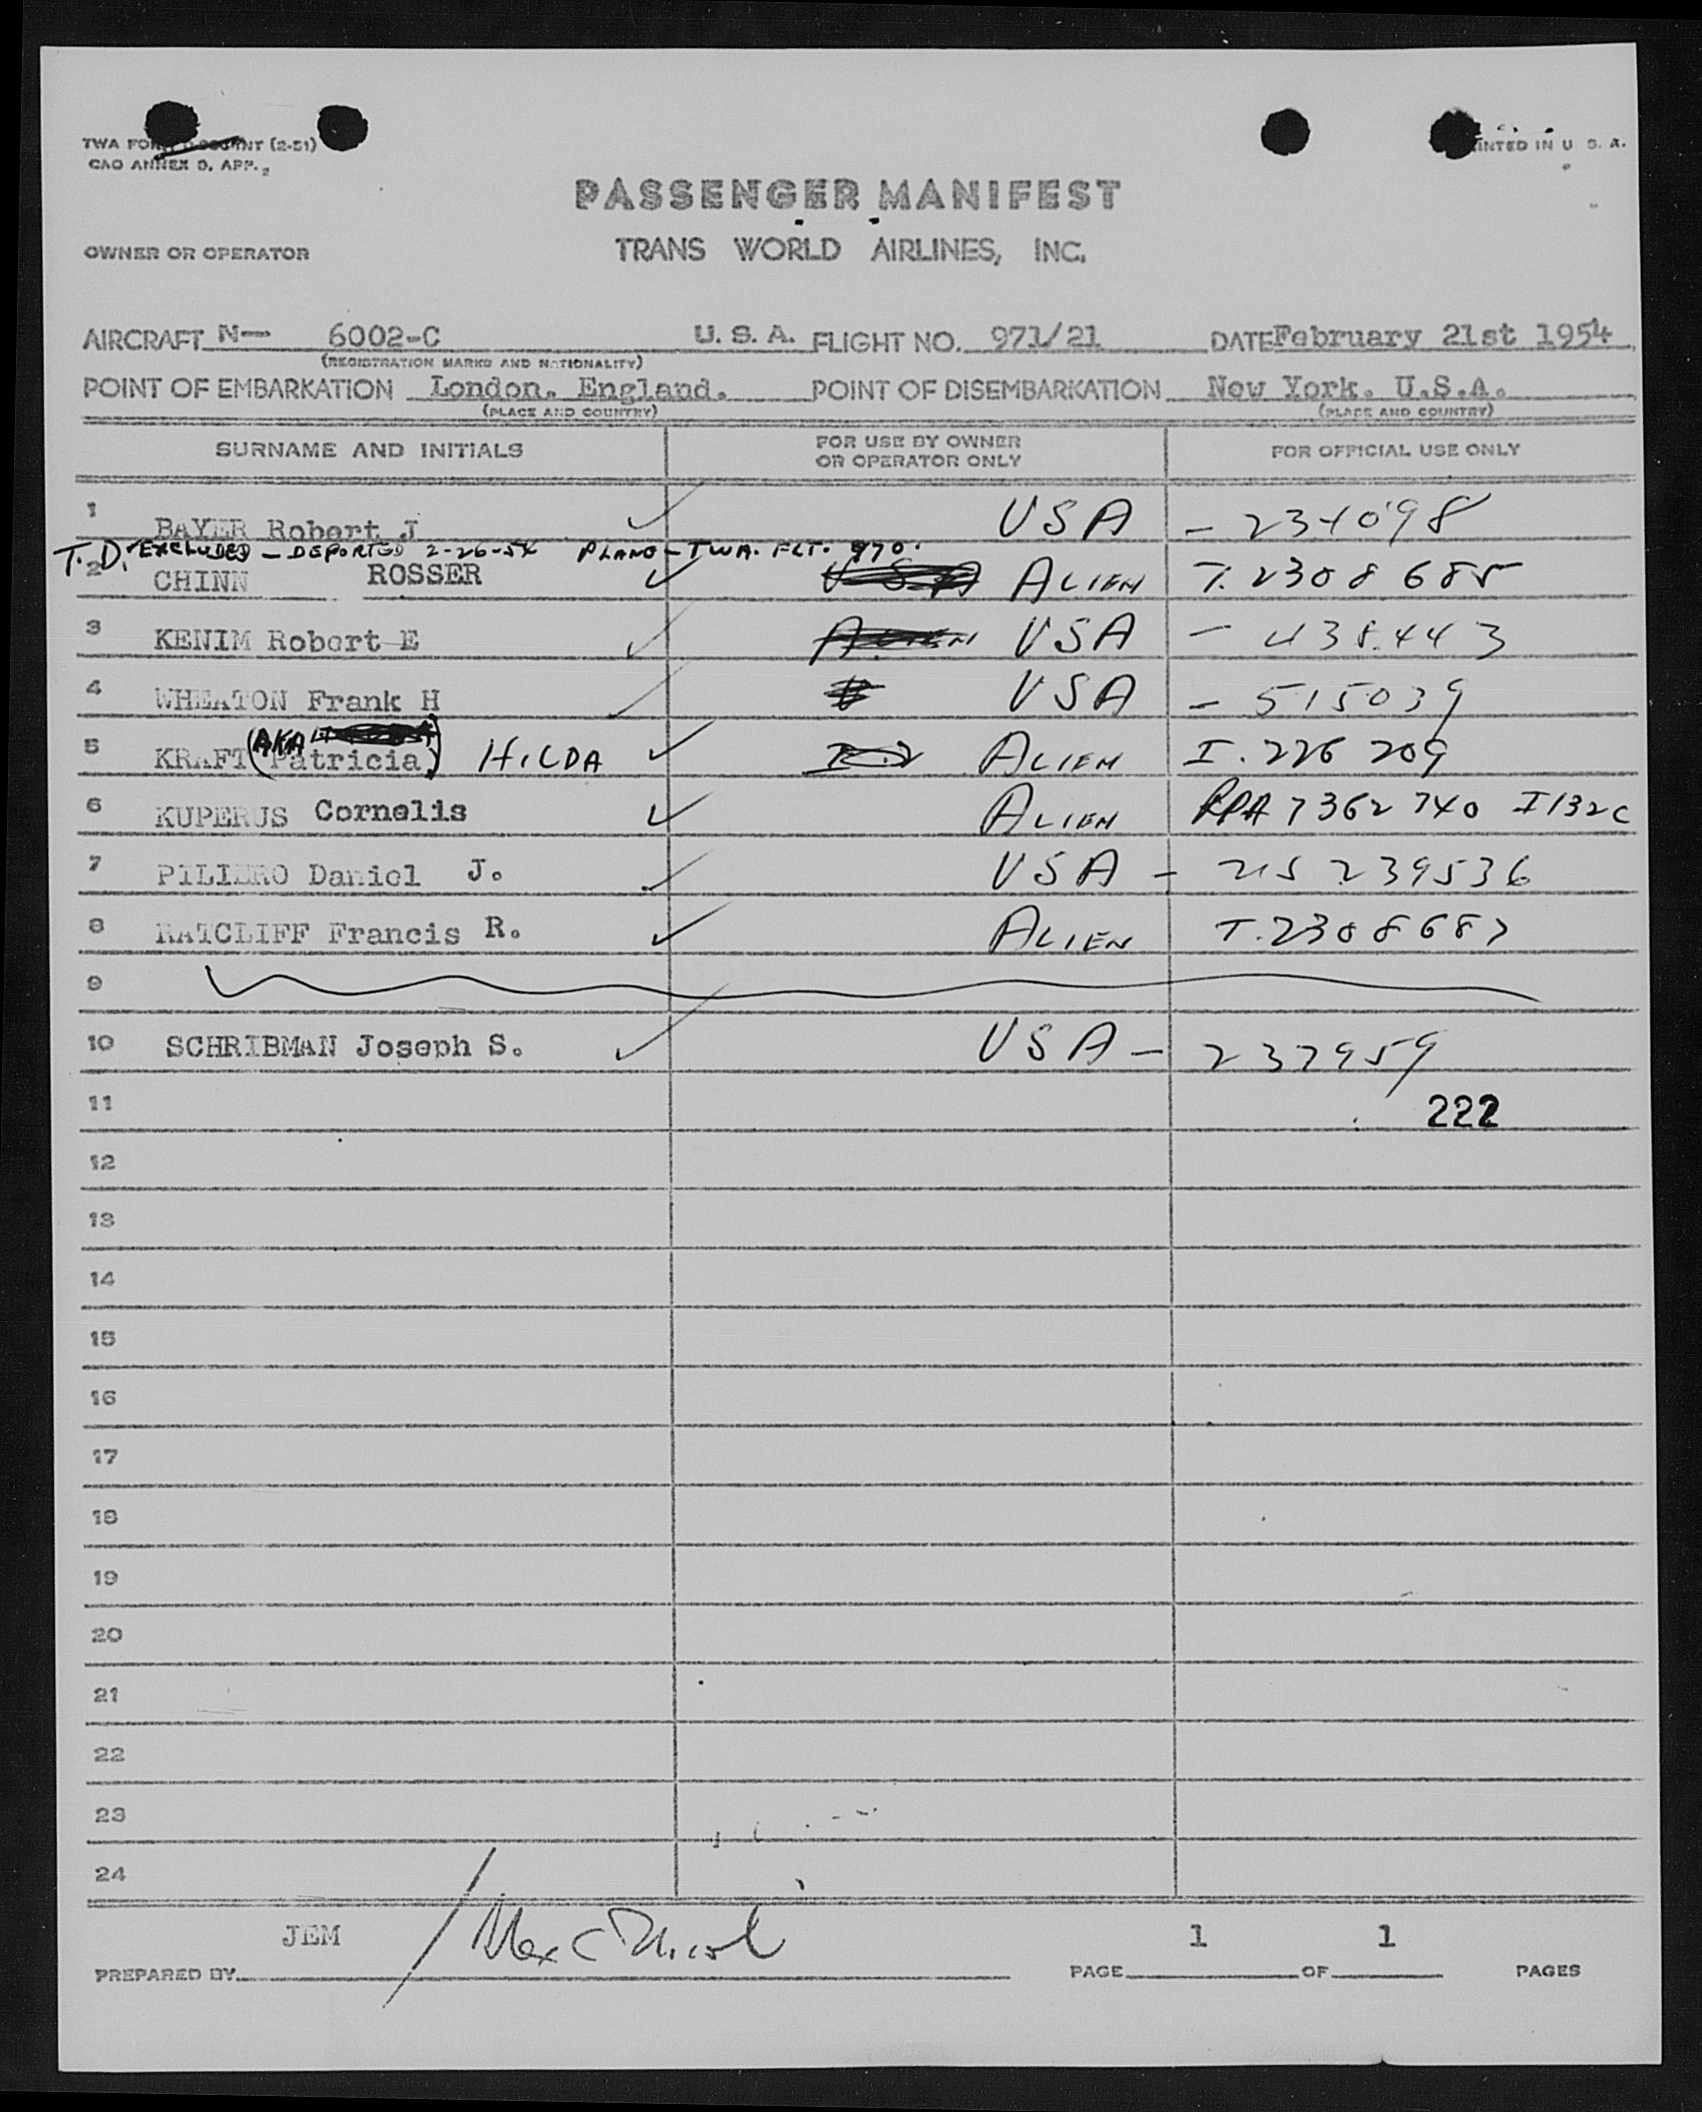 TWA FORM (2-51)
CAO ANNEX 9, APP. 2
PRINTED IN U. S. A.
PASSENGER MANIFEST
OWNER OR OPERATOR TRANS WORLD AIRLINES, INC.
AIRCRAFT N— 6002-C U. S. A. FLIGHT NO. 971/21 DATE February 21st 1954
(REGISTRATION MARKS AND NATIONALITY)
POINT OF EMBARKATION London. England. POINT OF DISEMBARKATION New York. U.S.A.
(PLACE AND COUNTRY) (PLACE AND COUNTRY)
SURNAME AND INITIALS FOR USE BY OWNER OR OPERATOR ONLY FOR OFFICIAL USE ONLY
1 BAYER Robert J USA - 234098
T.D. EXCLUDED - DEPORTED 2-26-54 PLANE - TWA. FLT. 970.
2 CHINN ROSSER ALIEN T. 2308685
3 KENIM Robert E USA - 438443
4 WHEATON Frank H USA - 515039
5 KRAFT (AKA Patricia) HILDA ALIEN I. 226209
6 KUPERUS Cornelis ALIEN 7362740 I132C
7 PILIERO Daniel J. USA - 239536
8 RATCLIFF Francis R. ALIEN T. 2308687
9
10 SCHRIBMAN Joseph S. USA - 237959
11 222
12
13
14
15
16
17
18
19
20
21
22
23
24
PREPARED BY JEM / PAGE 1 OF 1 PAGES